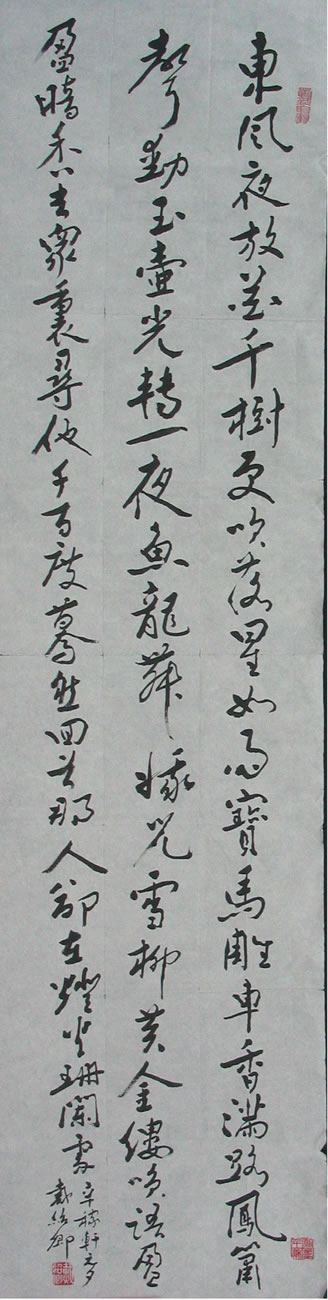 東風夜放花千樹更吹落星如雨寶馬雕車香滿路鳳簫
聲動玉壺光轉一夜魚龍舞娥兒雪柳黃金縷笑語盈
盈暗香去衆裏尋他千百度驀然回首那人卻在燈火珊闌處
辛稼軒元夕
戴紹卿